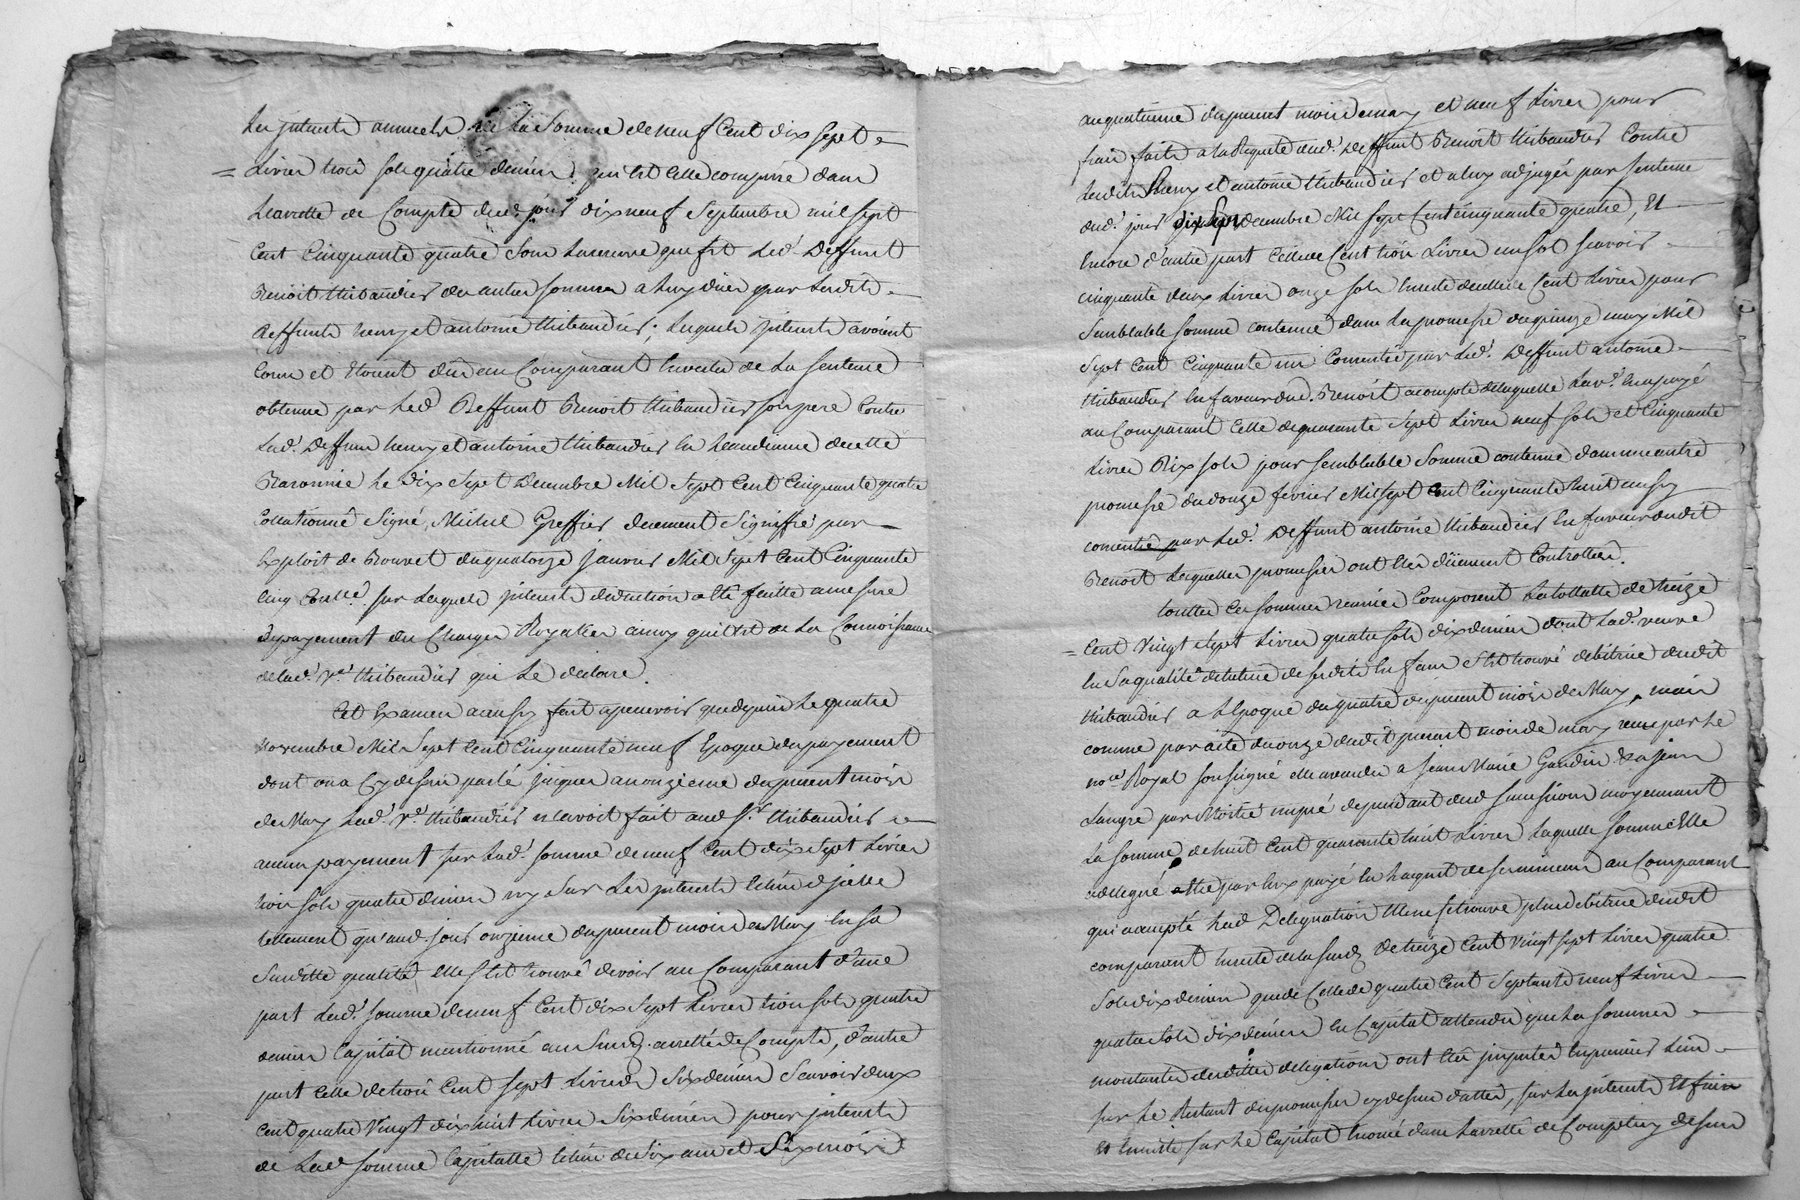 les interets annuels de la somme de neuf Cent dix sept
Livres trois sols quatre deniers qui est celle comprise dans
L'arretté de Compte dud. jour dix neuf Septembre mil sept
Cent Cinquante quatre sous la reserve que fit led. Deffunt
Benoit thibaudier des autres sommes a luy dues par lesdits
Deffunts henry et antoine thibaudier; lesquels interets avoient
Couru et Etoient dûs au Comparant En vertu de La sentence
obtenue par led Deffunt Benoit thibaudier son pere Contre
Lesd. Deffuns henry et antoine thibaudier En L'audiance de cette
Baronnie le dix Sept Decembre Mil Sept Cent Cinquante quatre
Collationné Signé, Michel Greffier duement Signiffié par
Exploit de Bouvet du quatorze janvier Mil Sept Cent Cinquante
Cinq sur lesquels interets deduction a Eté faitte a mesure
de payement des Charges Royalles ainsy qu'il est de la Connoissance
de lad. Ve thibaudier qui le declare.
Cet Examen a aussy fait apercevoir que depuis le quatre
novembre Mil Sept Cent Cinquante neuf Epoque du payement
dont on a Cy dessus parlé jusques au onzieme du present mois
de May lad. Ve thibaudier n'avoit fait aud Sr. thibaudier
aucun payement sur lad. somme de neuf Cent dix Sept Livres
trois sols quatre deniers ny sur les interets Echus d'jcelle
tellement qu'aud jour onzieme du present mois de May En sa
Susditte qualité elle s'est trouvé devoir au Comparant d'une
part lad. somme de neuf Cent dix Sept Livres trois sols quatre
deniers Capital mentionné au Susd. arretté de Compte, d'autre
part Celle de trois Cent Sept Livres Six deniers Scavoir deux
Cent quatre Vingt dix huit Livres Six deniers pour interets
de lad somme Capitalle Echus de Six ans et Six mois
au quatrieme du present mois de may et neuf Livres pour
frais faits a la Requete dud. Deffunt Benoit thibaudier Contre
lesdits henry et antoine thibaudier et a luy adjugés par sentence
dud. jour dix Sept decembre Mil Sept Cent Cinquante quatre, Et
Encore d'autre part Celle de Cent trois Livres un sol scavoir
cinquante deux Livres onze sols Reste de celle de Cent Livres pour
Semblable somme contenue dans la promesse du quinze may Mil
Sept Cent Cinquante un Consentie par led. Deffunt antoine
thibaudier En faveur dud. Benoit a compte de laquelle lad Ve a payé
au Comparant Celle de quarante Sept Livres neuf sols et Cinquante
Livres Dix sols pour semblable Somme contenue dans une autre
promesse du douze fevrier Mil Sept Cent Cinquante huit aussy
consentie par led. Deffunt antoine thibaudier En faveur dudit
Benoit lesquelles promesses ont Eté düement Controllées.
touttes Ces sommes reunies Composent La tottalle de treize
Cent Vingt Sept Livres quatre sols dix deniers dont lad. veuve
En Sa qualité de tutrice de sesdits Enfans s'est trouvé debitrice dudit
thibaudier a l'Epoque du quatre du present mois de May, mais
comme par acte du onze dudit present mois de may reçu par le
nore. Royal soussigné elle a vendu a jean Marie Gaudin & a jean
Langre par Moitié dependant dud succession moyennant
La somme de huit Cent quarante huit Livres laquelle somme Elle
a delegué etre par Eux payé En l'acquit de ses mineurs au Comparant
qui a accepté lad Delegation Elle ne se trouve plus debitrice dudit
comparant Ensuite de la susd. de treize Cent Vingt Sept Livres quatre
Sols dix deniers que de Celle de quatre Cent Septante neuf Livres
quatre sols dix deniers En Capital attendu que la somme
montante desdittes delegations ont Eté jmputés En premier Lieu
sur le Restant des promesses cy dessus dattées, sur les interets Et frais
et Ensuite sur le Capital Enoncé dans l'arretté de Compte cy dessus